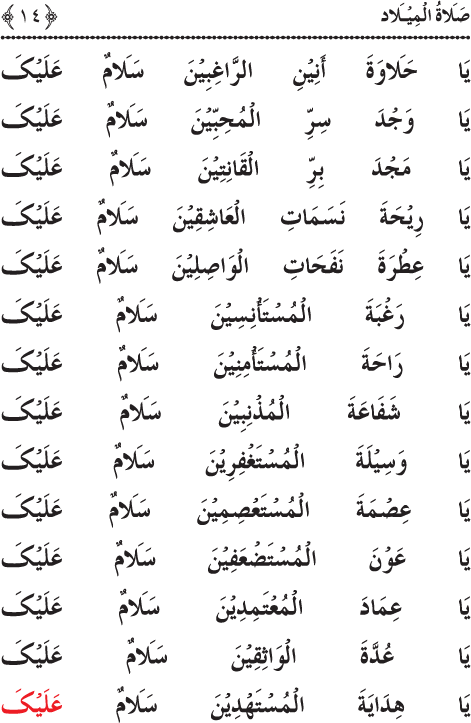 صَلَاةُ الْمِيْلَاد ﴿١٤﴾
يَا حَلَاوَةَ أَنِيْنِ الرَّاغِبِيْنَ سَلَامٌ عَلَيْكَ
يَا وَجْدَ سِرِّ الْمُحِبِّيْنَ سَلَامٌ عَلَيْكَ
يَا مَجْدَ بِرِّ الْقَانِتِيْنَ سَلَامٌ عَلَيْكَ
يَا رِيْحَةَ نَسَمَاتِ الْعَاشِقِيْنَ سَلَامٌ عَلَيْكَ
يَا عِطْرَةَ نَفَحَاتِ الْوَاصِلِيْنَ سَلَامٌ عَلَيْكَ
يَا رَغْبَةَ الْمُسْتَأْنِسِيْنَ سَلَامٌ عَلَيْكَ
يَا رَاحَةَ الْمُسْتَأْمِنِيْنَ سَلَامٌ عَلَيْكَ
يَا شَفَاعَةَ الْمُذْنِبِيْنَ سَلَامٌ عَلَيْكَ
يَا وَسِيْلَةَ الْمُسْتَغْفِرِيْنَ سَلَامٌ عَلَيْكَ
يَا عِصْمَةَ الْمُسْتَعْصِمِيْنَ سَلَامٌ عَلَيْكَ
يَا عَوْنَ الْمُسْتَضْعَفِيْنَ سَلَامٌ عَلَيْكَ
يَا عِمَادَ الْمُعْتَمِدِيْنَ سَلَامٌ عَلَيْكَ
يَا عُدَّةَ الْوَاثِقِيْنَ سَلَامٌ عَلَيْكَ
يَا هِدَايَةَ الْمُسْتَهْدِيْنَ سَلَامٌ عَلَيْكَ